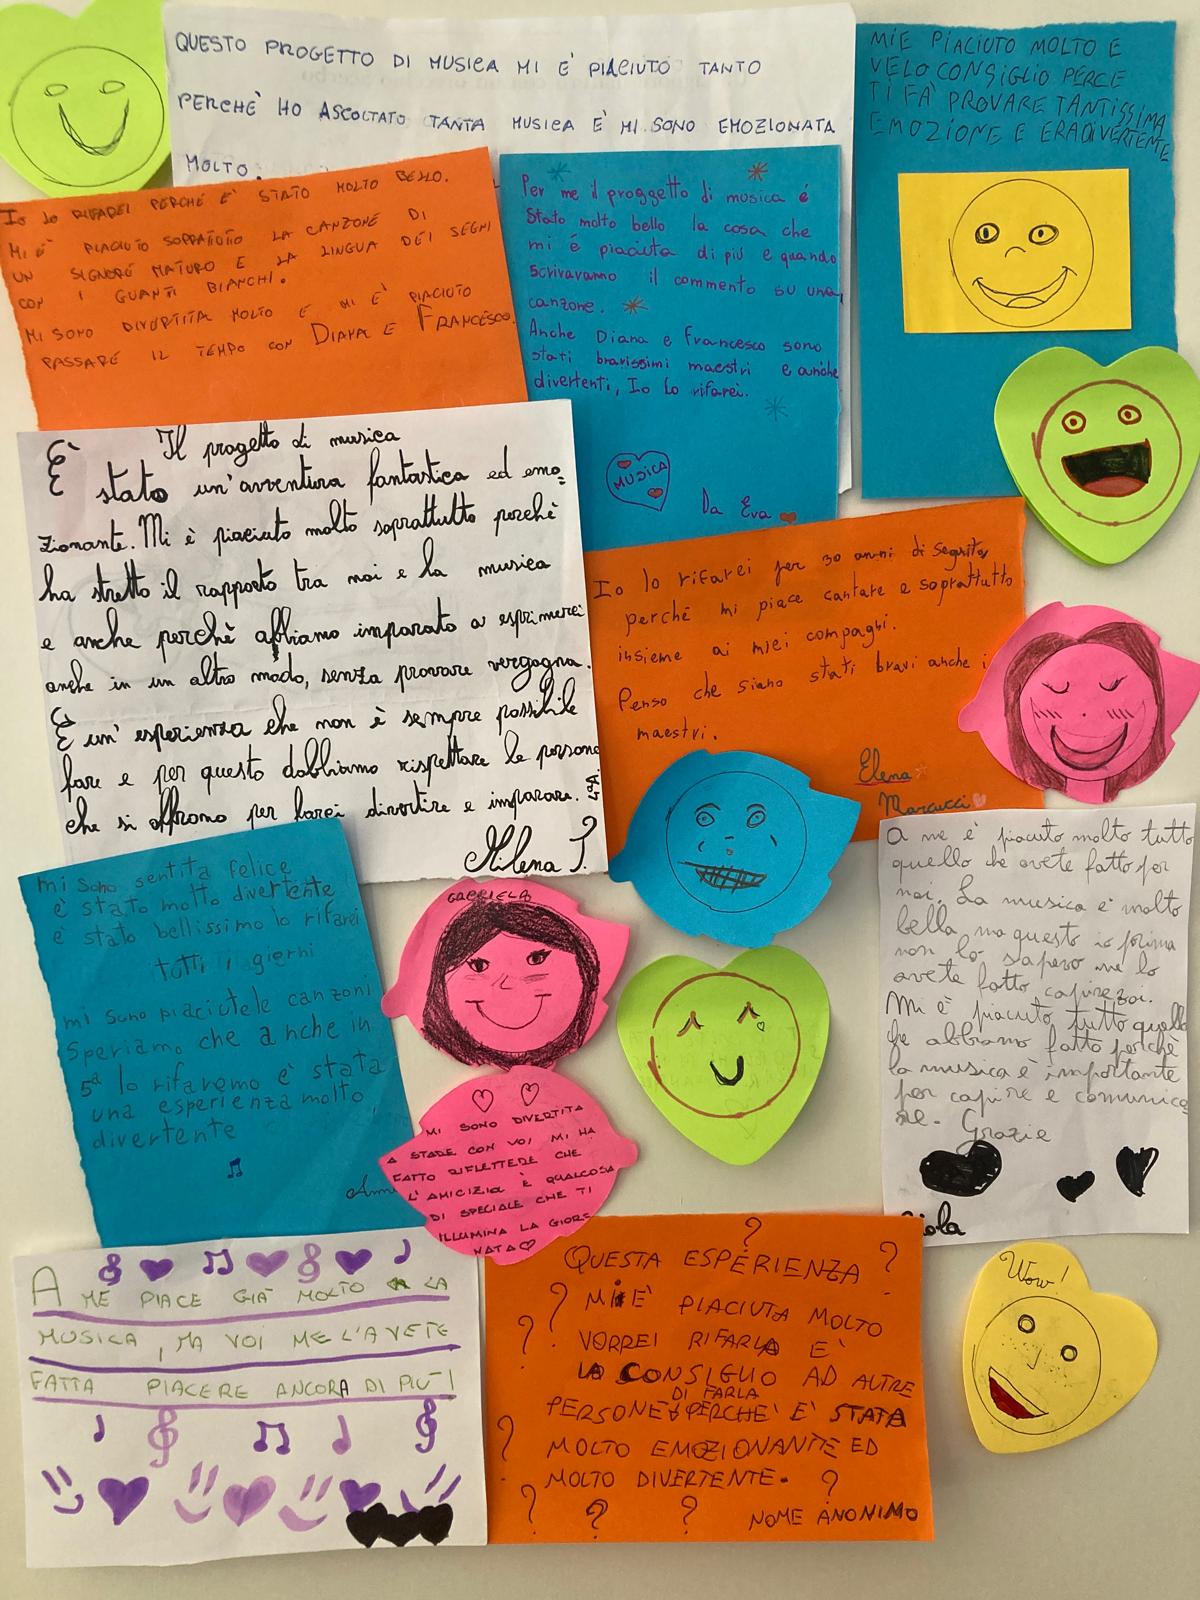 QUESTO PROGETTO DI MUSICA MI E' PIACIUTO TANTO
PERCHE' HO ASCOLTATO TANTA MUSICA E' MI SONO EMOZIONATA
MOLTO.
MIE PIACIUTO MOLTO E
VELO CONSIGLIO PERCE
TI FA' PROVARE TANTISSIMA
EMOZIONE E ERADIVERTENTE
Io lo RIFAREI PERCHE E' STATO MOLTO BELLO.
MI E' PIACIUTO SOPRATUTTO LA CANZONE DI
UN SIGNORE MATURO E LA LINGUA DEI SEGNI
CON I GUANTI BIANCHI.
MI SONO DIVERTITA MOLTO E MI E' PIACIUTO
PASSARE IL TEMPO CON DIANA E FRANCESCO.
Per me il proggetto di musica é
stato molto bello la cosa che
mi é piaciuta di più e quando
scrivavamo il commento su una
canzone.
Anche Diana e Francesco sono
stati bravissimi maestri e anche
divertenti, Io lo rifarei.
MUSICA
Da Eva
Il progetto di musica
È stato un'avventura fantastica ed emo=
zionante. Mi è piaciuto molto soprattutto perchè
ha stretto il rapporto tra noi e la musica
e anche perchè abbiamo imparato a esprimerci
anche in un altro modo, senza provare vergogna.
È un'esperienza che non è sempre possibile
fare e per questo dobbiamo rispettare le persone
che si offrono per farci divertire e imparare.
Milena T.
Io lo rifarei per 30 anni di seguito
perché mi piace cantare e soprattutto
insieme ai miei compagni.
Penso che siano stati bravi anche i
maestri.
Elena
Marcucci
mi sono sentita felice
e' stato molto divertente
e' stato bellissimo lo rifarei
tutti i giorni
mi sono piaciute le canzoni
Speriamo che anche in
5ª lo rifaremo e' stata
una esperienza molto
divertente
GABRIELA
A me è piaciuto molto tutto
quello che avete fatto per
noi. La musica e' molto
bella, ma questo io prima
non lo sapevo me lo
avete fatto capire voi.
Mi è piaciuto tutto quello
che abbiamo fatto perchè
la musica è importante
per capire e comunica
re. Grazie
MI SONO DIVERTITA
A STARE CON VOI, MI HA
FATTO RIFLETTERE CHE
L'AMICIZIA È QUALCOSA
DI SPECIALE CHE TI
ILLUMINA LA GIOR-
NATA
A ME PIACE GIÀ MOLTO LA
MUSICA, MA VOI ME L'AVETE
FATTA PIACERE ANCORA DI PIU'!
QUESTA ESPERIENZA
MI E' PIACIUTA MOLTO
VORREI RIFARLA E'
LA CONSIGLIO AD ALTRE
PERSONE DI FARLA PERCHE' E' STATA
MOLTO EMOZIONANTE ED
MOLTO DIVERTENTE.
NOME ANONIMO
Wow!